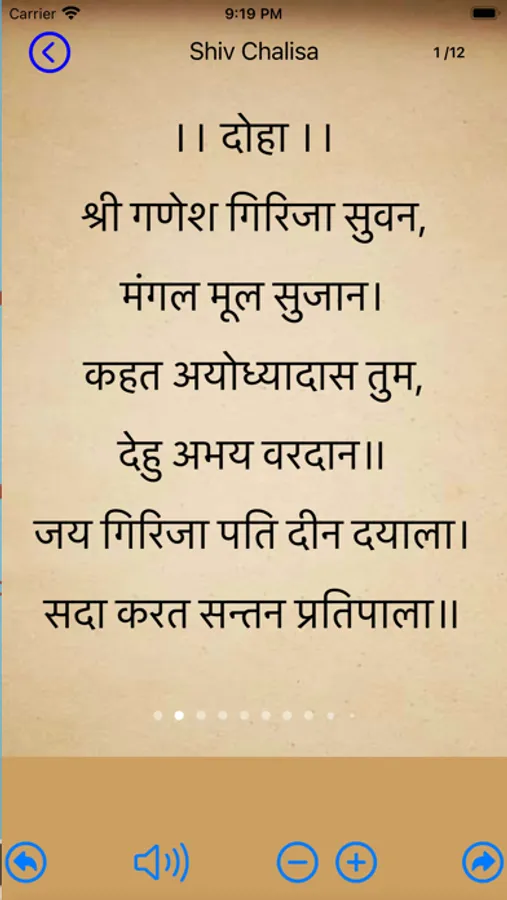 Carrier 9:19 PM
Shiv Chalisa 1/12
।। दोहा ।।
श्री गणेश गिरिजा सुवन,
मंगल मूल सुजान।
कहत अयोध्यादास तुम,
देहु अभय वरदान॥
जय गिरिजा पति दीन दयाला।
सदा करत सन्तन प्रतिपाला॥